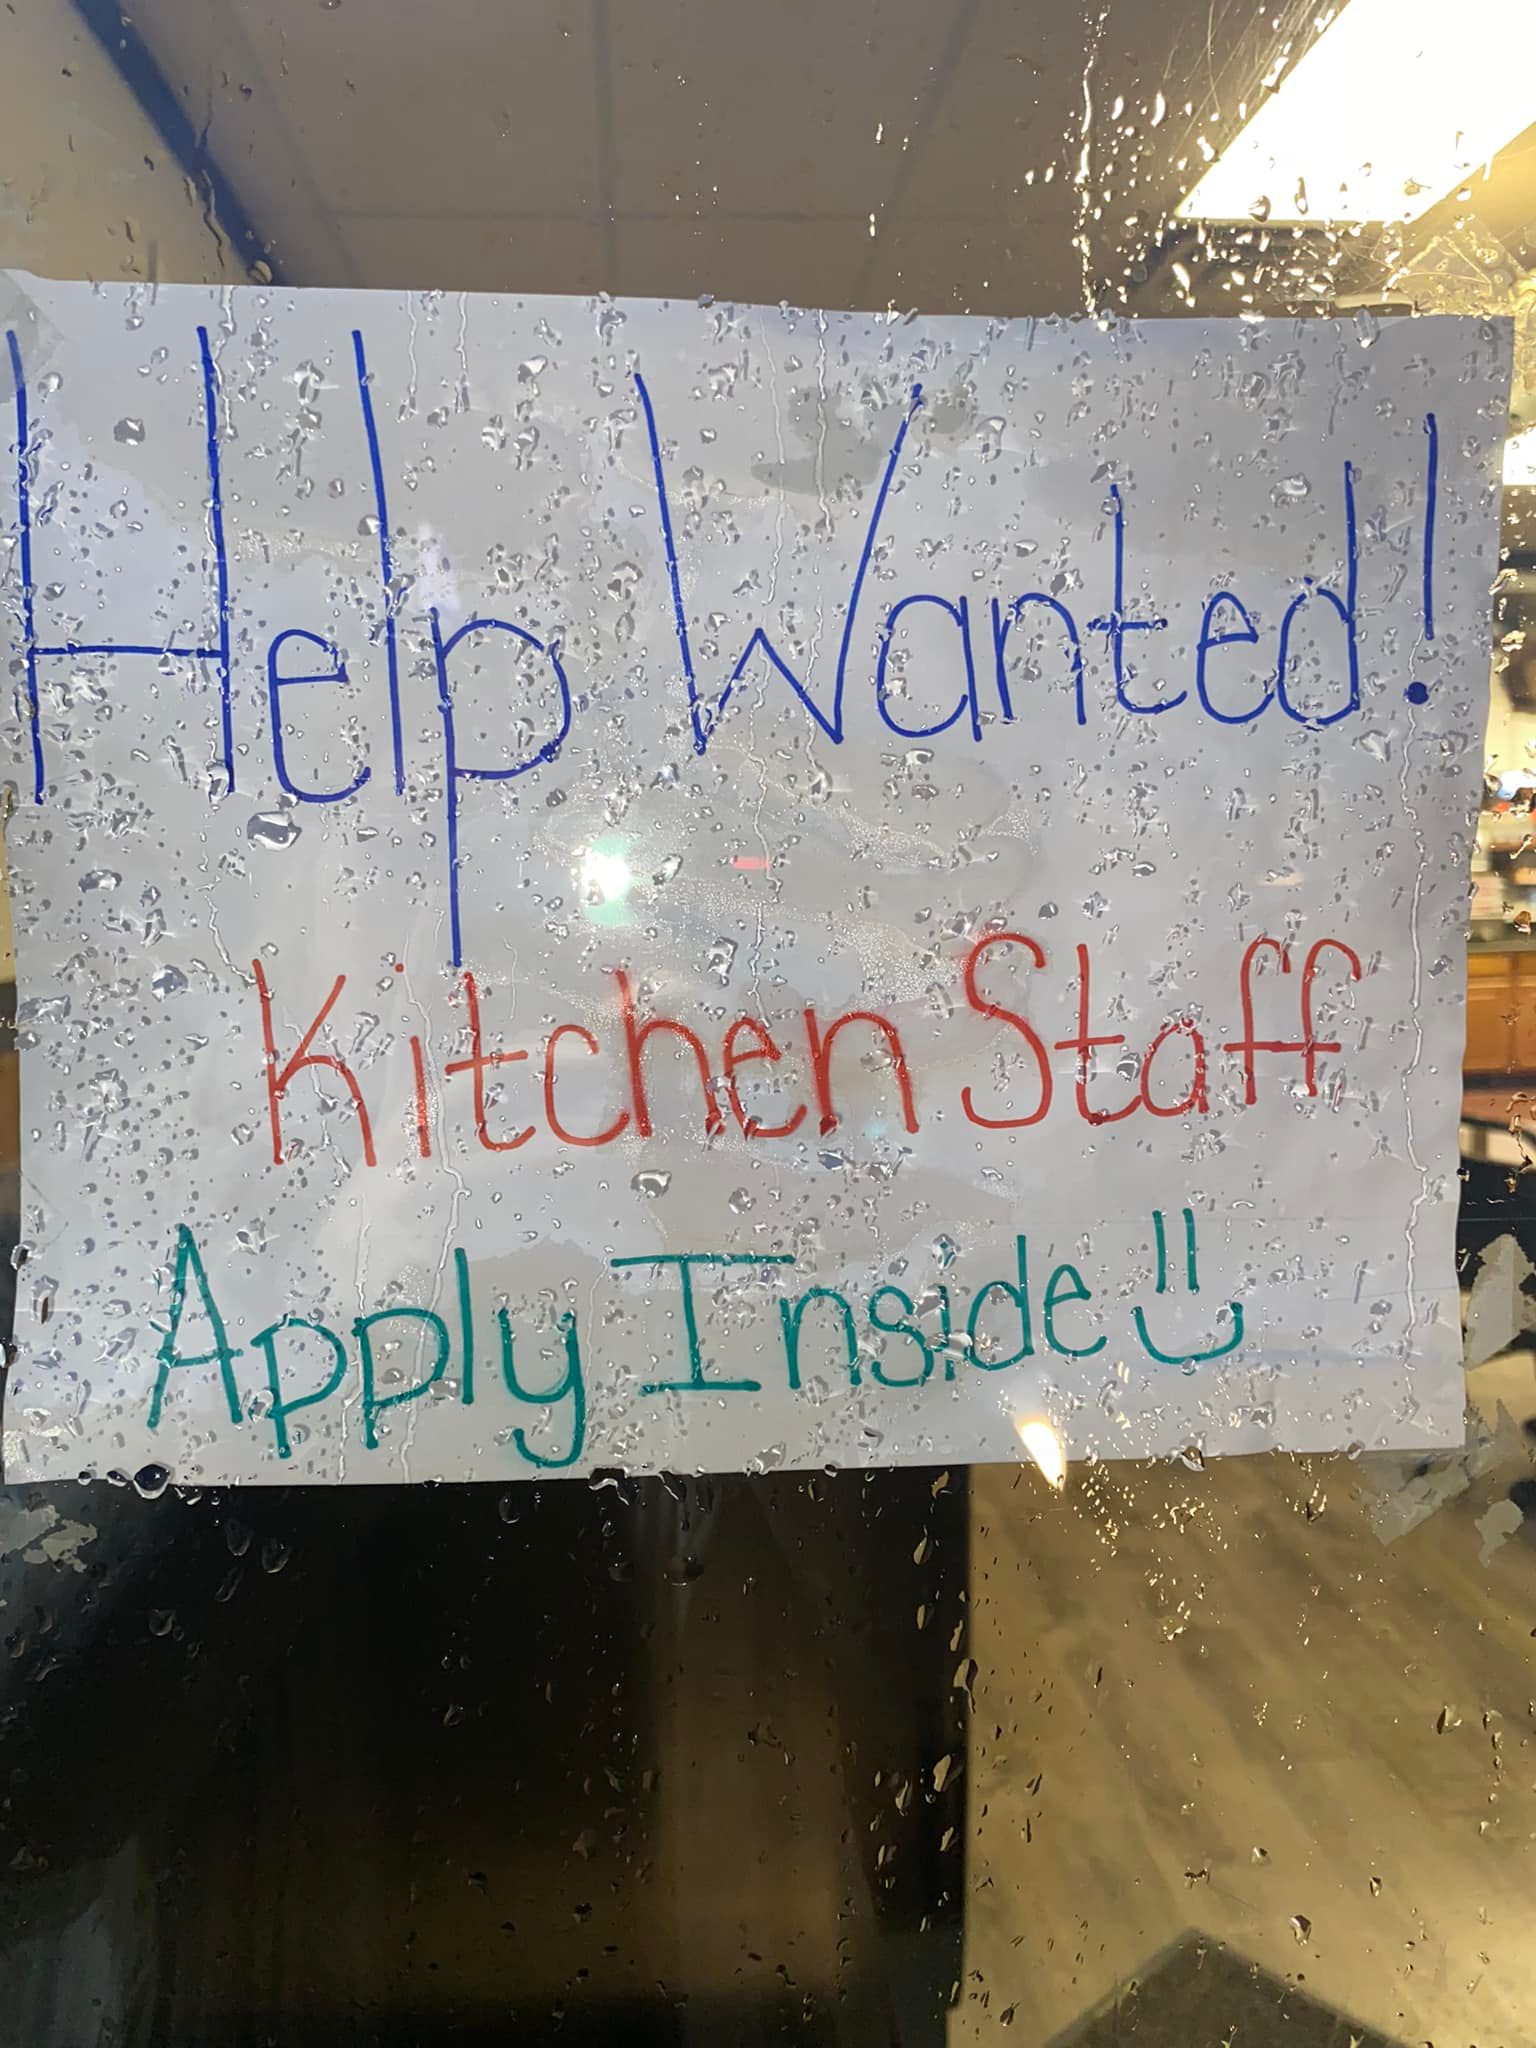 Help Wanted!
Kitchen Staff
Apply Inside